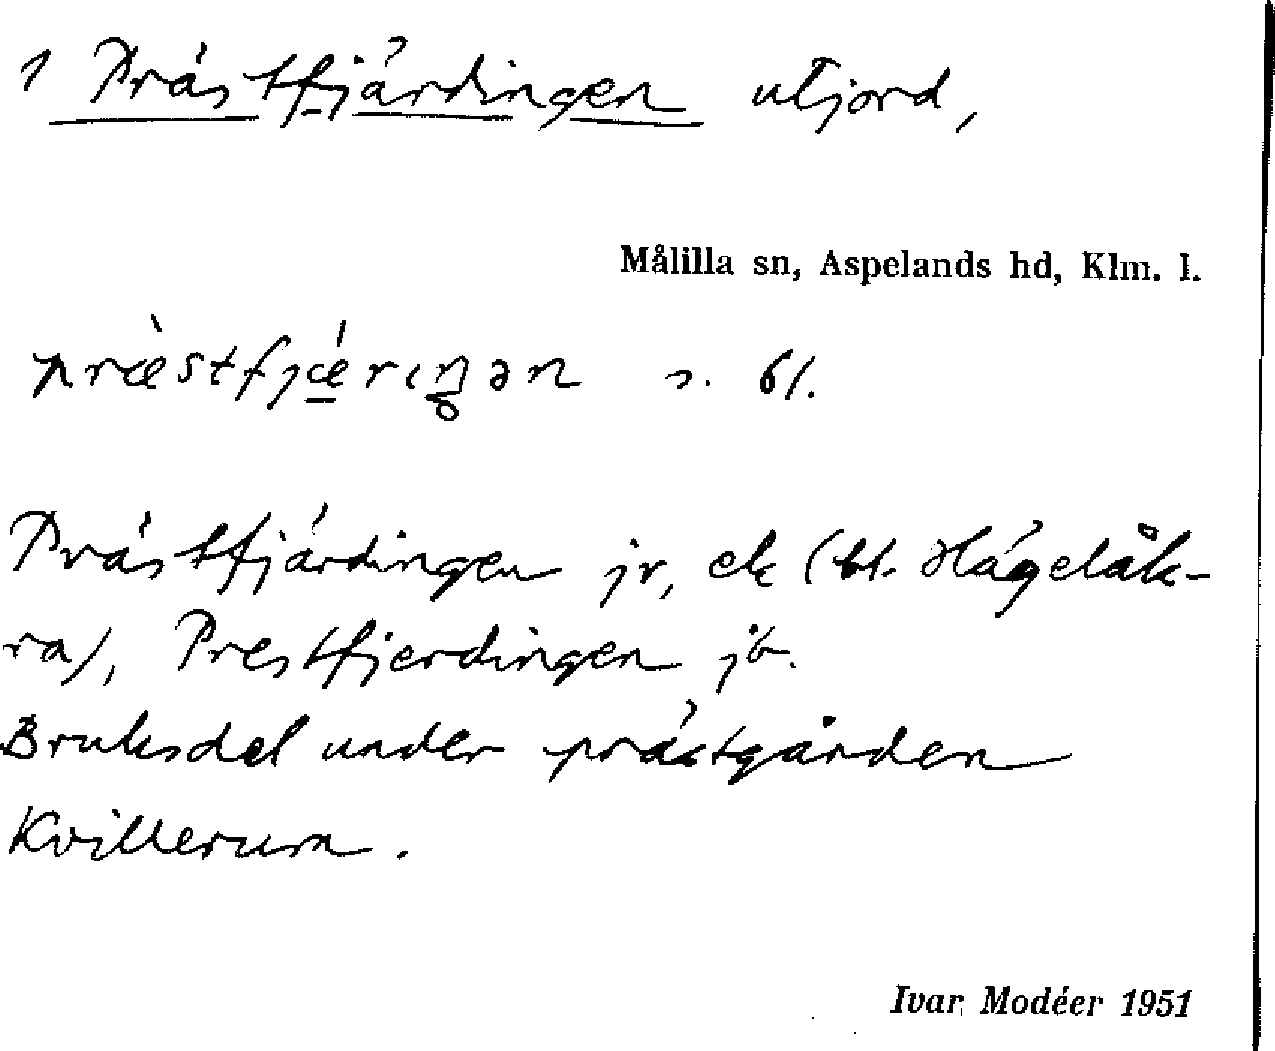 1 Prästfjärdingen utjord,
Målilla sn, Aspelands hd, Klm. l.
præ̀stfjǽrıŋən s. 61.
Prästfjärdingen jr, ek (bl. Hägelåk-
ra), Prestfjerdingen jb.
Bruksdel under prästgården
Kvillerum.
Ivar Modéer 1951